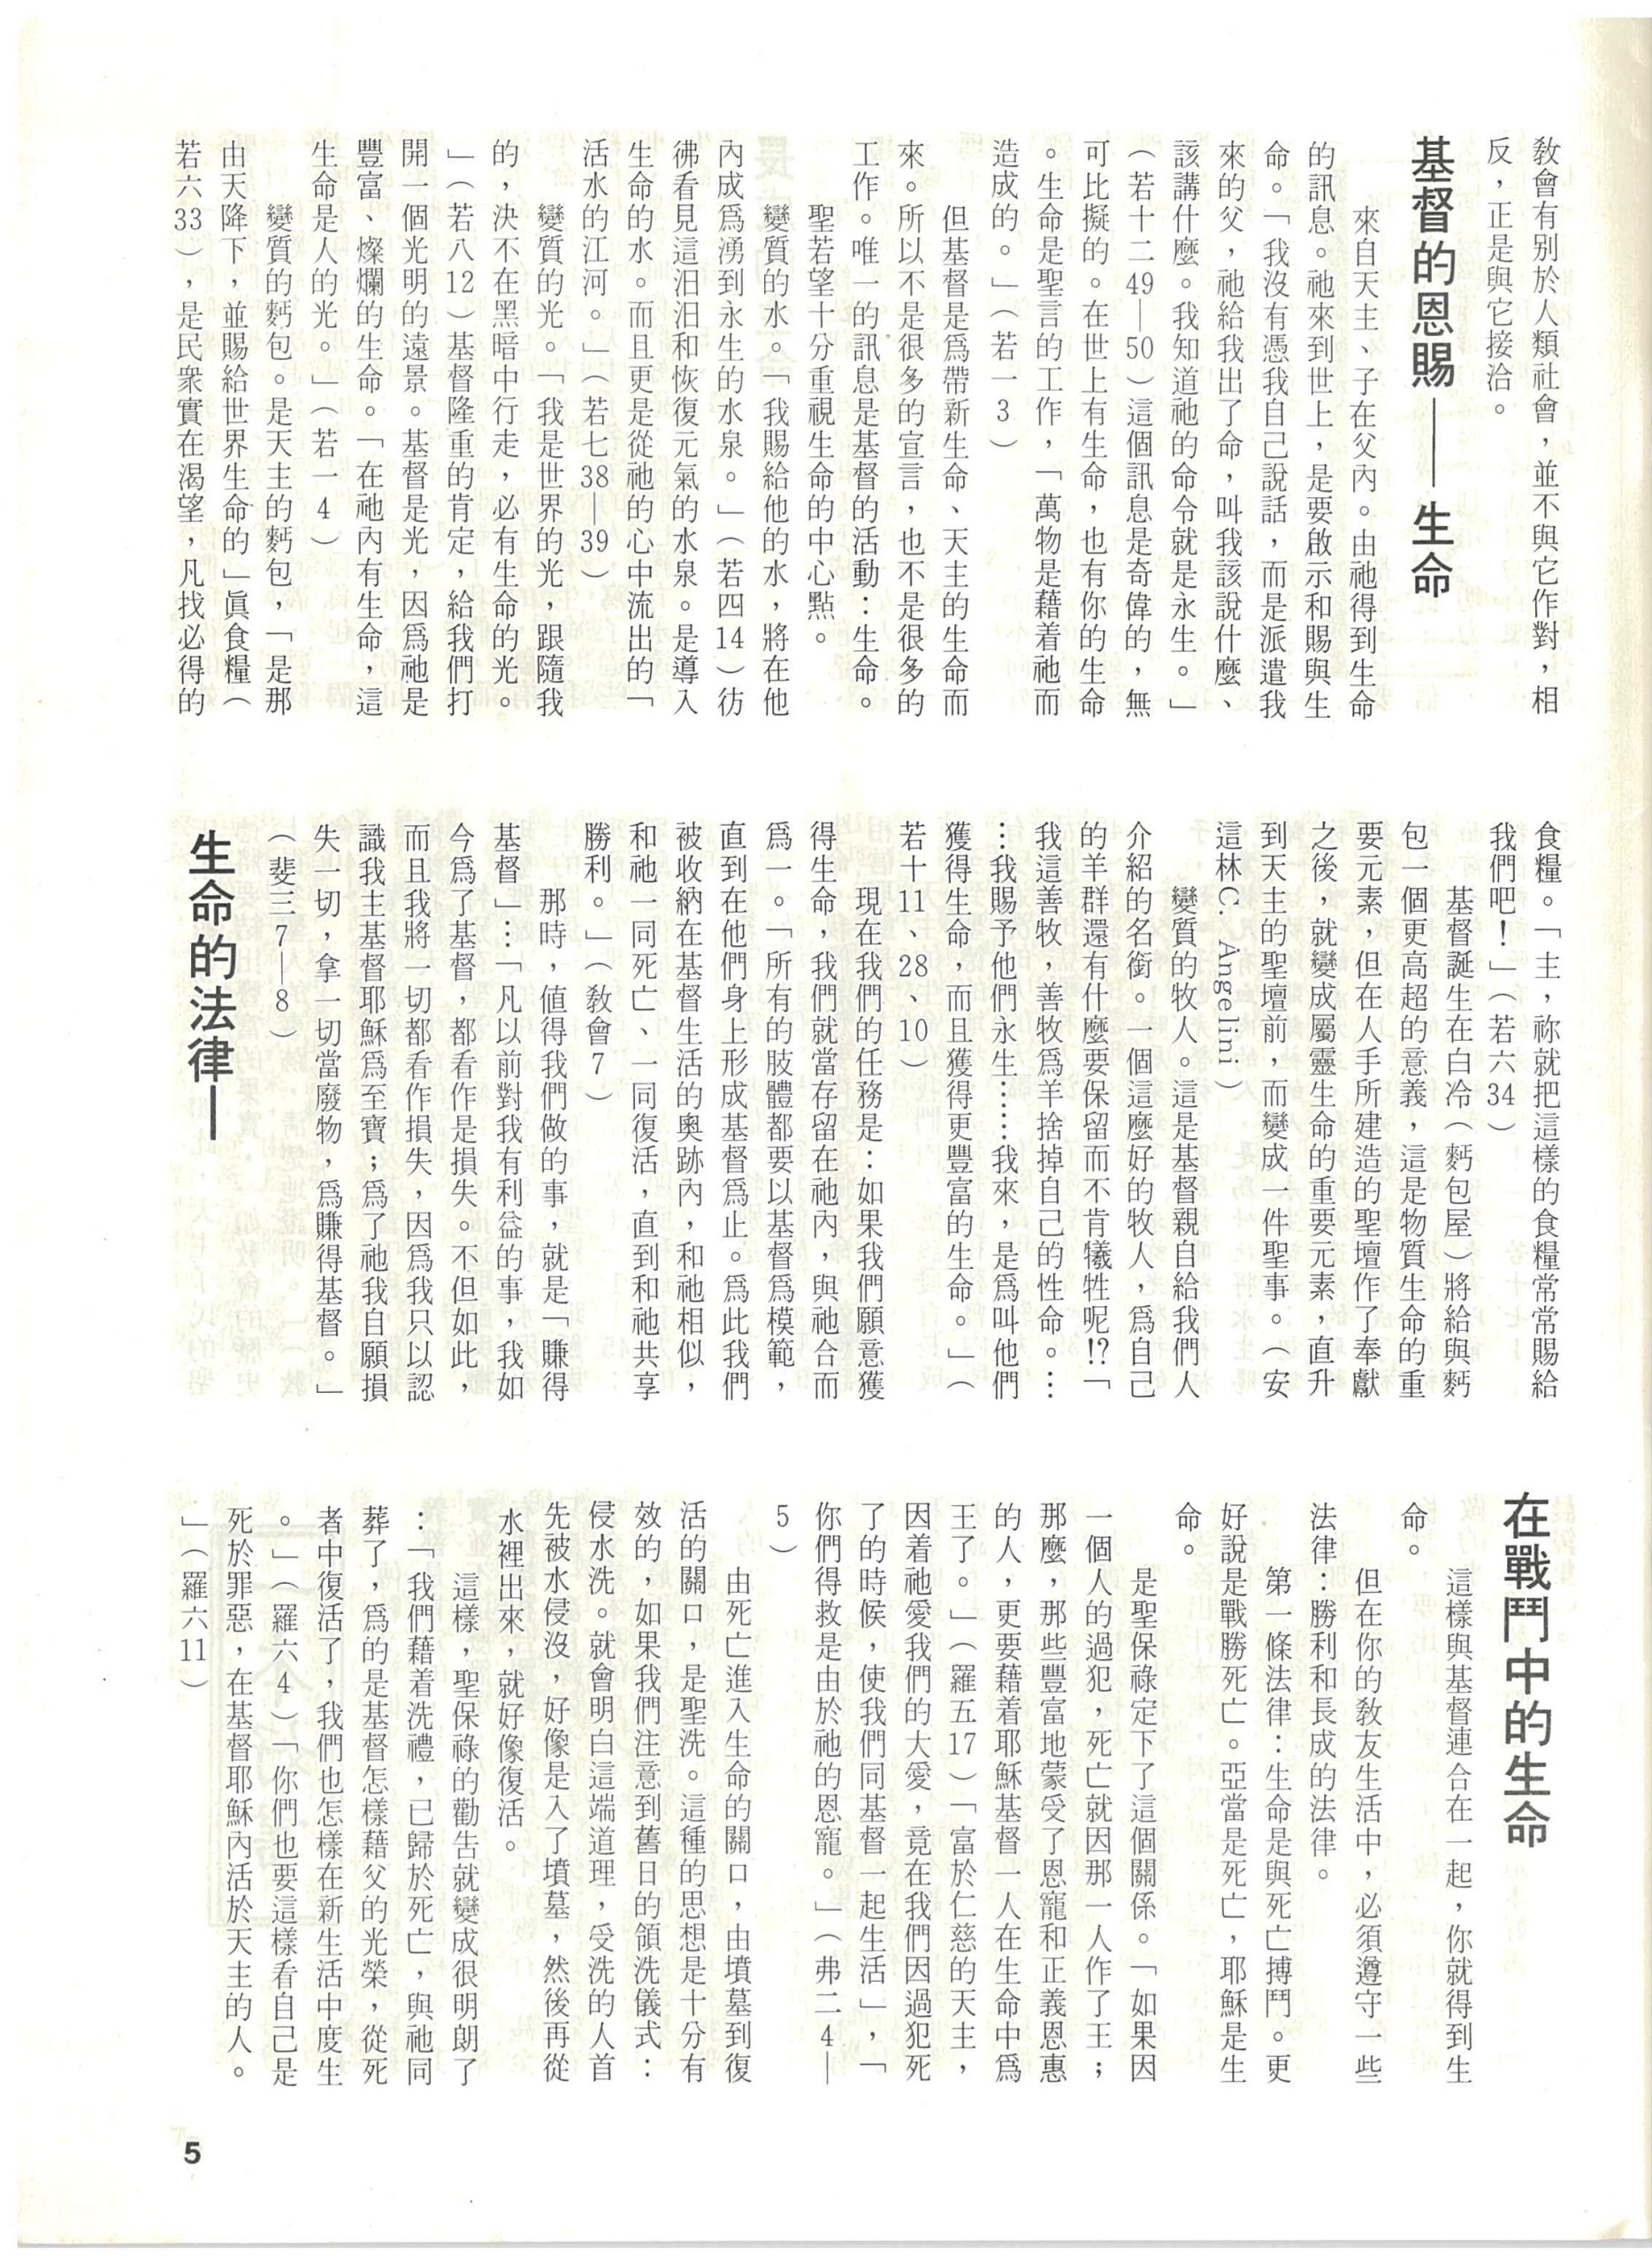 教會有別於人類社會，並不與它作對，相
反，正是與它接洽。
基督的恩賜——生命
來自天主、子在父內。由祂得到生命
的訊息。祂來到世上，是要啟示和賜與生
命。「我沒有憑我自己說話，而是派遣我
來的父，祂給我出了命，叫我該說什麼、
該講什麼。我知道祂的命令就是永生。」
（若十二49—50）這個訊息是奇偉的，無
可比擬的。在世上有生命，也有你的生命
。生命是聖言的工作，「萬物是藉着祂而
造成的。」（若一3）
但基督是爲帶新生命、天主的生命而
來。所以不是很多的宣言，也不是很多的
工作。唯一的訊息是基督的活動：生命。
聖若望十分重視生命的中心點。
變質的水。「我賜給他的水，將在他
內成爲湧到永生的水泉。」（若四14）彷
彿看見這汩汩和恢復元氣的水泉。是導入
生命的水。而且更是從祂的心中流出的「
活水的江河。」（若七38—39）
變質的光。「我是世界的光，跟隨我
的，決不在黑暗中行走，必有生命的光。
」（若八12）基督隆重的肯定，給我們打
開一個光明的遠景。基督是光，因爲祂是
豐富、燦爛的生命。「在祂內有生命，這
生命是人的光。」（若一4）
變質的麪包。是天主的麪包，「是那
由天降下，並賜給世界生命的」眞食糧（
若六33），是民衆實在渴望，凡找必得的
食糧。「主，祢就把這樣的食糧常常賜給
我們吧！」（若六34）
基督誕生在白冷（麪包屋）將給與麪
包一個更高超的意義，這是物質生命的重
要元素，但在人手所建造的聖壇作了奉獻
之後，就變成屬靈生命的重要元素，直升
到天主的聖壇前，而變成一件聖事。（安
這林C. Angelini）
變質的牧人。這是基督親自給我們人
介紹的名銜。一個這麼好的牧人，爲自己
的羊群還有什麼要保留而不肯犧牲呢!?「
我這善牧，善牧爲羊捨掉自己的性命。…
…我賜予他們永生……我來，是爲叫他們
獲得生命，而且獲得更豐富的生命。」（
若十11、28、10）
現在我們的任務是：如果我們願意獲
得生命，我們就當存留在祂內，與祂合而
爲一。「所有的肢體都要以基督爲模範，
直到在他們身上形成基督爲止。爲此我們
被收納在基督生活的奧跡內，和祂相似，
和祂一同死亡、一同復活，直到和祂共享
勝利。」（敎會7）
那時，值得我們做的事，就是「賺得
基督」…「凡以前對我有利益的事，我如
今爲了基督，都看作是損失。不但如此，
而且我將一切都看作損失，因爲我只以認
識我主基督耶穌爲至寶；爲了祂我自願損
失一切，拿一切當廢物，爲賺得基督。」
（斐三7—8）
生命的法律—
在戰鬥中的生命
這樣與基督連合在一起，你就得到生
命。
但在你的敎友生活中，必須遵守一些
法律：勝利和長成的法律。
第一條法律：生命是與死亡搏鬥。更
好說是戰勝死亡。亞當是死亡，耶穌是生
命。
是聖保祿定下了這個關係。「如果因
一個人的過犯，死亡就因那一人作了王；
那麼，那些豐富地蒙受了恩寵和正義恩惠
的人，更要藉着耶穌基督一人在生命中爲
王了。」（羅五17）「富於仁慈的天主，
因着祂愛我們的大愛，竟在我們因過犯死
了的時候，使我們同基督一起生活」，「
你們得救是由於祂的恩寵。」（弗二4—
5）
由死亡進入生命的關口，由墳墓到復
活的關口，是聖洗。這種的思想是十分有
效的，如果我們注意到舊日的領洗儀式：
侵水洗。就會明白這端道理，受洗的人首
先被水侵沒，好像是入了墳墓，然後再從
水裡出來，就好像復活。
這樣，聖保祿的勸告就變成很明朗了
：「我們藉着洗禮，已歸於死亡，與祂同
葬了，爲的是基督怎樣藉父的光榮，從死
者中復活了，我們也怎樣在新生活中度生
。」（羅六4）「你們也要這樣看自己是
死於罪惡，在基督耶穌內活於天主的人。
」（羅六11）
5